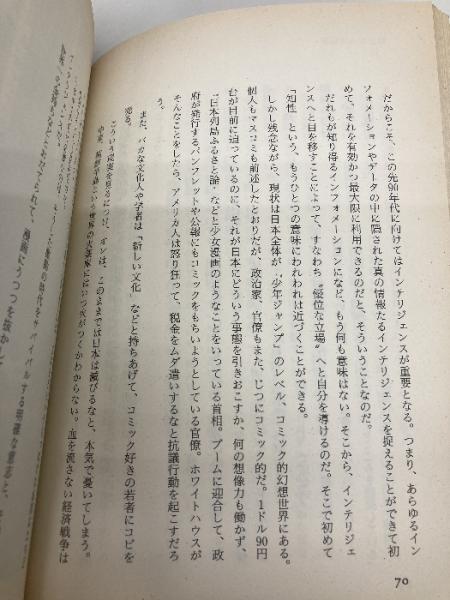 だからこそ、この先90年代に向けてはインテリジェンスが重要となる。つまり、あらゆるイン
フォメーションやデータの中に隠された真の情報たるインテリジェンスを捉えることができて初
めて、それを有効かつ最大限に利用できるのだと、そういうことなのだ。
だれもが知り得るインフォメーションになど、もう何も意味はない。そこから、インテリジェ
ンスへと目を移すことによって、すなわち〝優位な立場〟へと自分を導けるのだ。そこで初めて
「知性」という、もうひとつの意味にわれわれは近づくことができる。
しかし残念ながら、現状は日本全体が、〝少年ジャンプ〟のレベル、コミック的幻想世界にある。
個人もマスコミも前述したとおりだが、政治家、官僚もまた、じつにコミック的だ。1ドル90円
台が目前に迫っているのに、それが日本にどういう事態を引きおこすか、何の想像力も働かず、
〝日本列島ふるさと論〟などと少女漫画のようなことをいっている首相。ブームに迎合して、政
府が発行するパンフレットや公報にもコミックをもちいようとしている官僚。ホワイトハウスが
そんなことをしたら、アメリカ人は怒り狂って、税金をムダ遣いするなと抗議行動を起こすだろ
う。
また、バカな文化人や学者は「新しい文化」などと持ちあげて、コミック好きの若者にコビを
売る。
こういう現実を見るにつけ、ボクは、このままでは日本は滅びるなと、本気で憂いてしまう。
いつ火がつくかわからない。血を流さない経済戦争は
の時代をサバイバルする明確な意志と、
漫画にうつつを抜かし
70